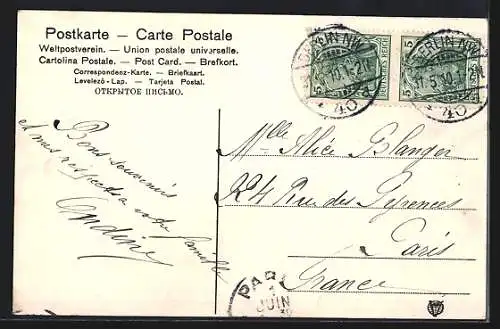 Postkarte — Carte Postale
Weltpostverein. — Union postale universelle.
Cartolina Postale. — Post Card. — Brefkort.
Correspondenz-Karte. — Briefkaart.
Levelező-Lap. — Tarjeta Postal.
ОТКРЫТОЕ ПИСЬМО.
BERLIN NW
40
BERLIN NW
40
Bons souvenirs
et mes respects a votre famille
Mlle Alice Blanger
24 Rue des Pyrenees
Paris
France
PARI
1
JUIN